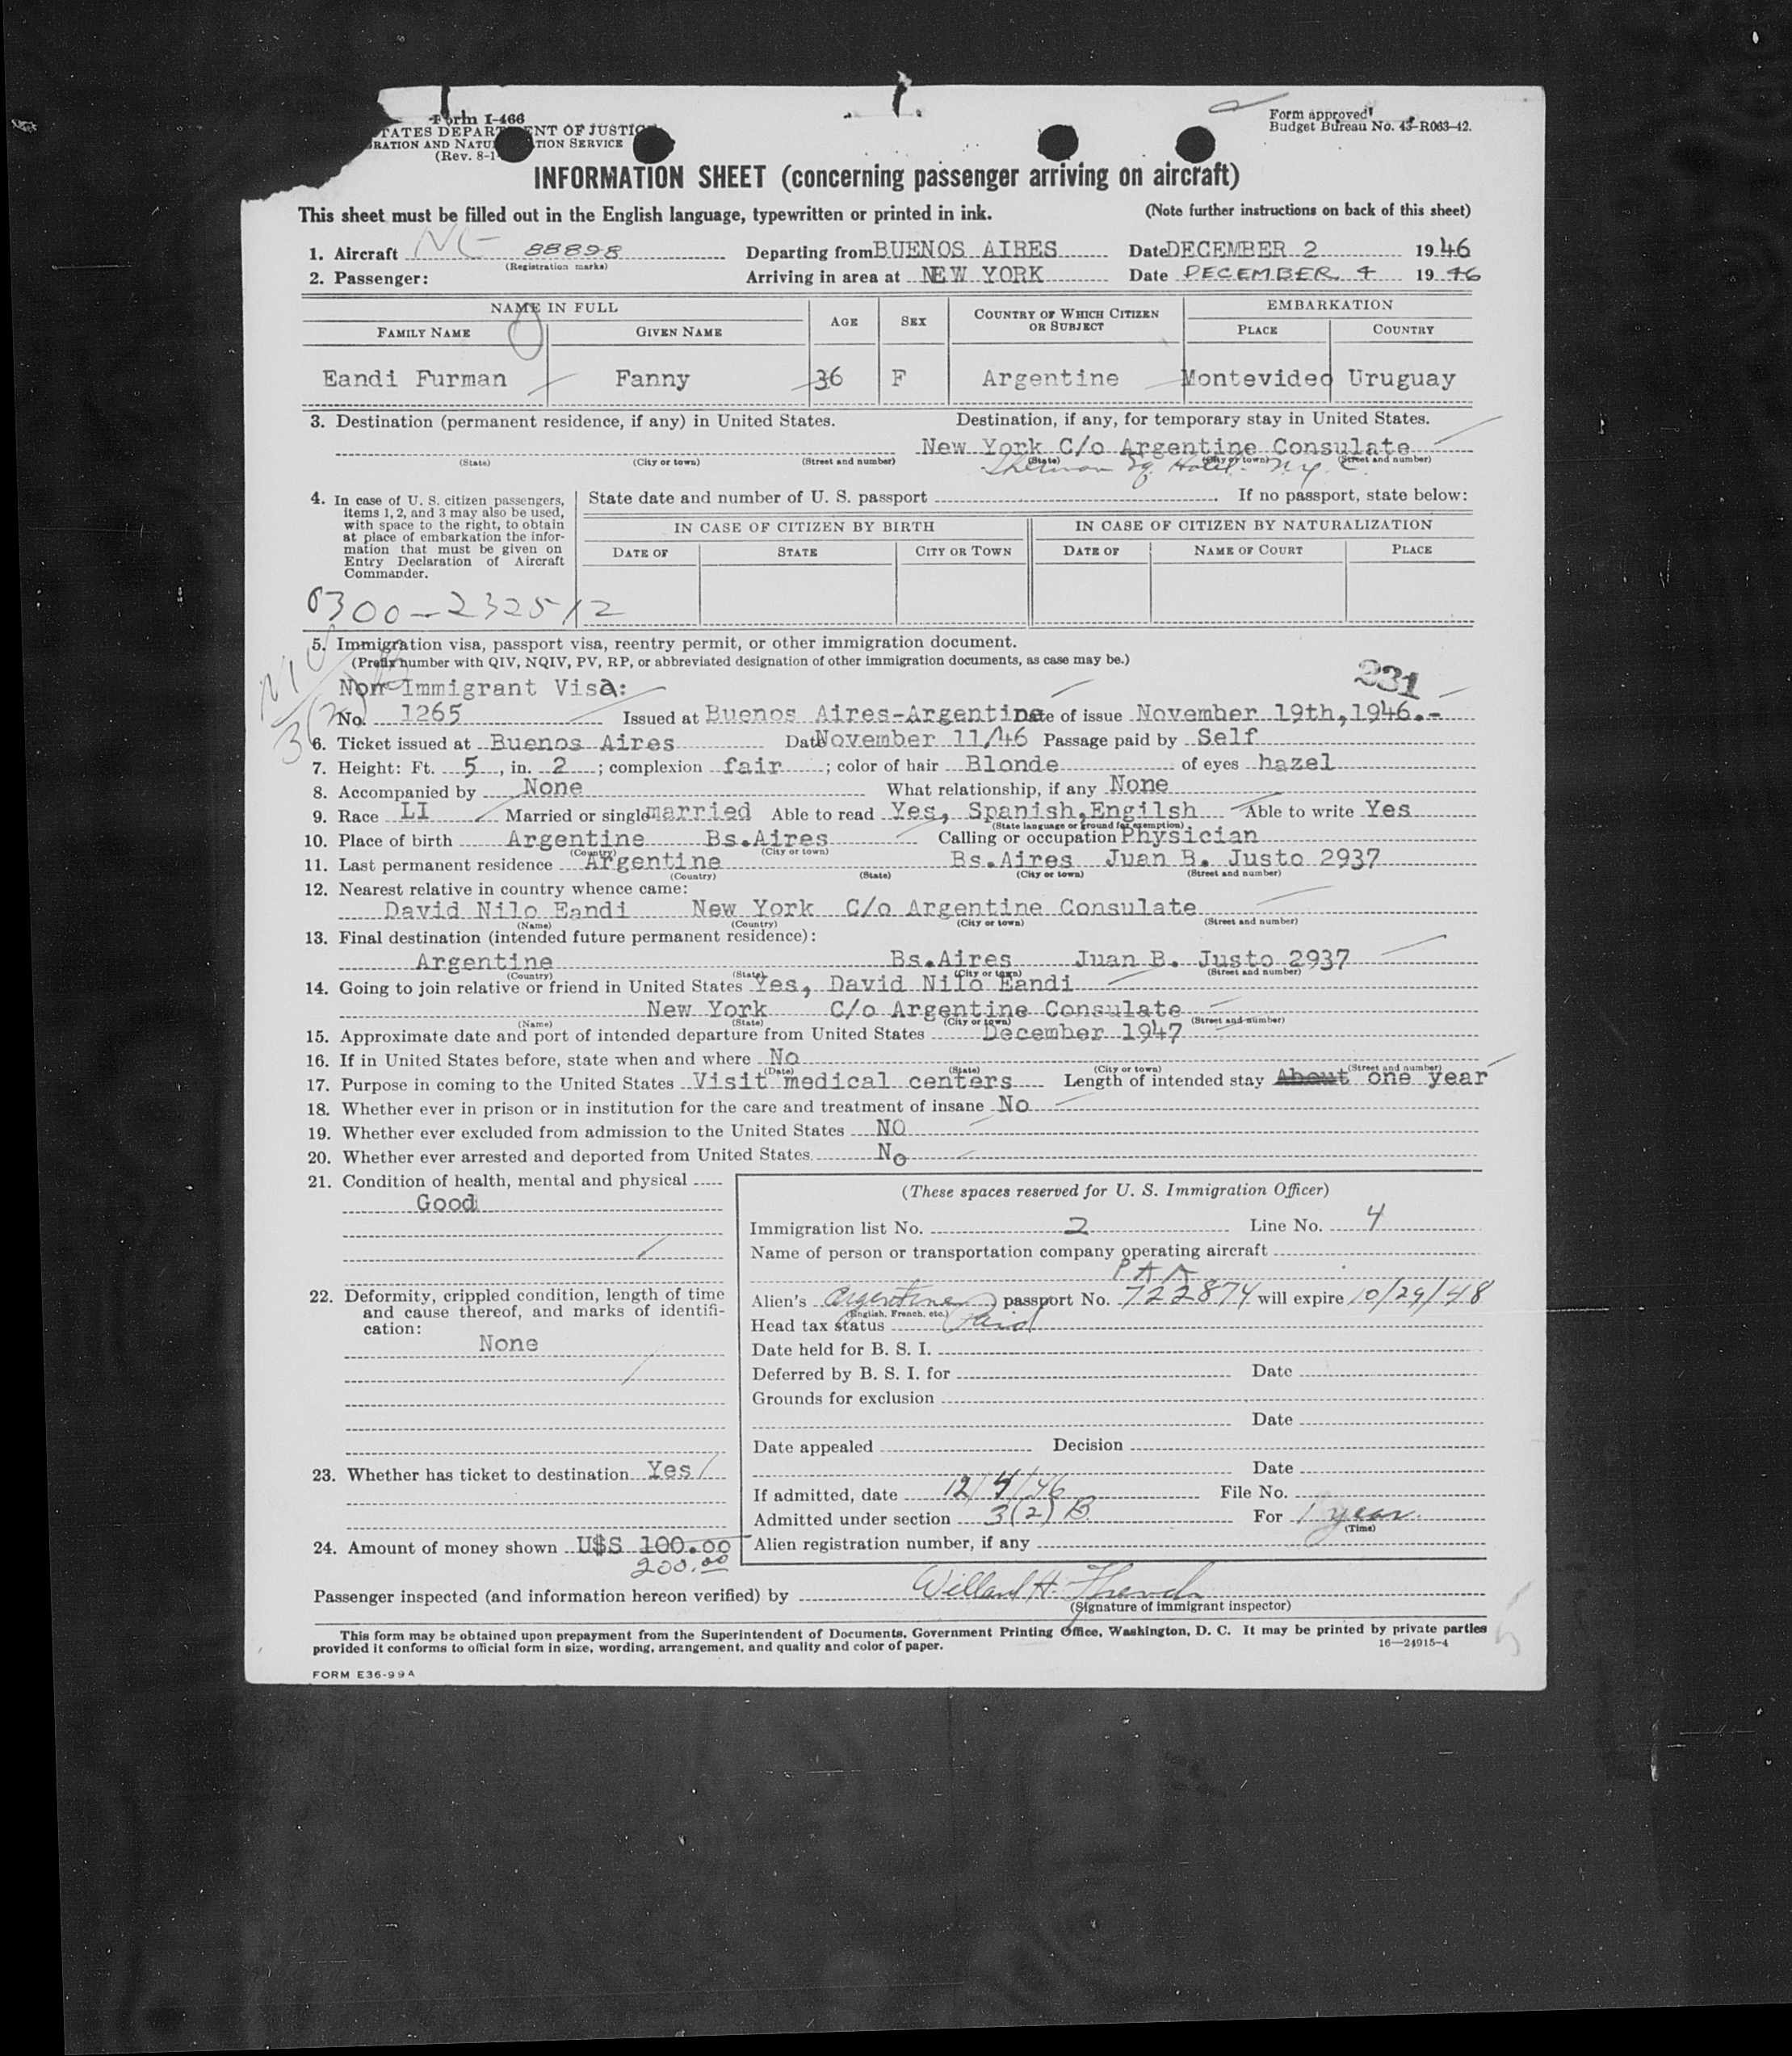 Form I-466
TATES DEPARTMENT OF JUSTIC
RATION AND NATU TION SERVICE
(Rev. 8-1
Form approved
Budget Bureau No. 43-R063-42.
INFORMATION SHEET (concerning passenger arriving on aircraft)
This sheet must be filled out in the English language, typewritten or printed in ink. (Note further instructions on back of this sheet)
1. Aircraft NC 88898 Departing from BUENOS AIRES Date DECEMBER 2 1946
(Registration marks)
2. Passenger: Arriving in area at NEW YORK Date DECEMBER 4 1946
NAME IN FULL AGE SEX COUNTRY OF WHICH CITIZEN OR SUBJECT EMBARKATION
FAMILY NAME GIVEN NAME PLACE COUNTRY
Eandi Furman Fanny 36 F Argentine Montevideo Uruguay
3. Destination (permanent residence, if any) in United States. Destination, if any, for temporary stay in United States.
New York C/o Argentine Consulate
(State) (City or town) (Street and number) (State) (City or town) (Street and number)
Sherman Sq. Hotel. N.Y.C.
4. In case of U. S. citizen passengers, items 1, 2, and 3 may also be used, with space to the right, to obtain at place of embarkation the information that must be given on Entry Declaration of Aircraft Commander.
State date and number of U. S. passport If no passport, state below:
IN CASE OF CITIZEN BY BIRTH IN CASE OF CITIZEN BY NATURALIZATION
DATE OF STATE CITY OR TOWN DATE OF NAME OF COURT PLACE
0300-232512
5. Immigration visa, passport visa, reentry permit, or other immigration document.
(Prefix number with QIV, NQIV, PV, RP, or abbreviated designation of other immigration documents, as case may be.)
231
Non Immigrant Visa:
3(2)
No. 1265 Issued at Buenos Aires-Argentina Date of issue November 19th,1946.-
6. Ticket issued at Buenos Aires Date November 11/46 Passage paid by Self
7. Height: Ft. 5, in. 2; complexion fair; color of hair Blonde of eyes hazel
8. Accompanied by None What relationship, if any None
9. Race LI Married or single married Able to read Yes, Spanish,Engilsh Able to write Yes
(State language or ground for exemption)
10. Place of birth Argentine Bs.Aires Calling or occupation Physician
(Country) (City or town)
11. Last permanent residence Argentine Bs.Aires Juan B. Justo 2937
(Country) (State) (City or town) (Street and number)
12. Nearest relative in country whence came:
David Nilo Eandi New York C/o Argentine Consulate
(Name) (Country) (City or town) (Street and number)
13. Final destination (intended future permanent residence):
Argentine Bs.Aires Juan B. Justo 2937
(Country) (State) (City or town) (Street and number)
14. Going to join relative or friend in United States Yes, David Nilo Eandi
New York C/o Argentine Consulate
(Name) (State) (City or town) (Street and number)
15. Approximate date and port of intended departure from United States December 1947
16. If in United States before, state when and where No
(Date) (State) (City or town) (Street and number)
17. Purpose in coming to the United States Visit medical centers Length of intended stay About one year
18. Whether ever in prison or in institution for the care and treatment of insane No
19. Whether ever excluded from admission to the United States NO
20. Whether ever arrested and deported from United States No
21. Condition of health, mental and physical
Good
22. Deformity, crippled condition, length of time and cause thereof, and marks of identification:
None
23. Whether has ticket to destination Yes
24. Amount of money shown U$S 100.00
200.00
(These spaces reserved for U. S. Immigration Officer)
Immigration list No. 2 Line No. 4
Name of person or transportation company operating aircraft
PAA
Alien's Argentine passport No. 722874 will expire 10/29/48
(English, French, etc.)
Head tax status Paid
Date held for B. S. I.
Deferred by B. S. I. for Date
Grounds for exclusion
Date
Date appealed Decision
Date
If admitted, date 12/4/46 File No.
Admitted under section 3(2) B For 1 year.
(Time)
Alien registration number, if any
Passenger inspected (and information hereon verified) by Willard H.
(Signature of immigrant inspector)
This form may be obtained upon prepayment from the Superintendent of Documents, Government Printing Office, Washington, D. C. It may be printed by private parties
provided it conforms to official form in size, wording, arrangement, and quality and color of paper. 16—24915-4
FORM E36-99A